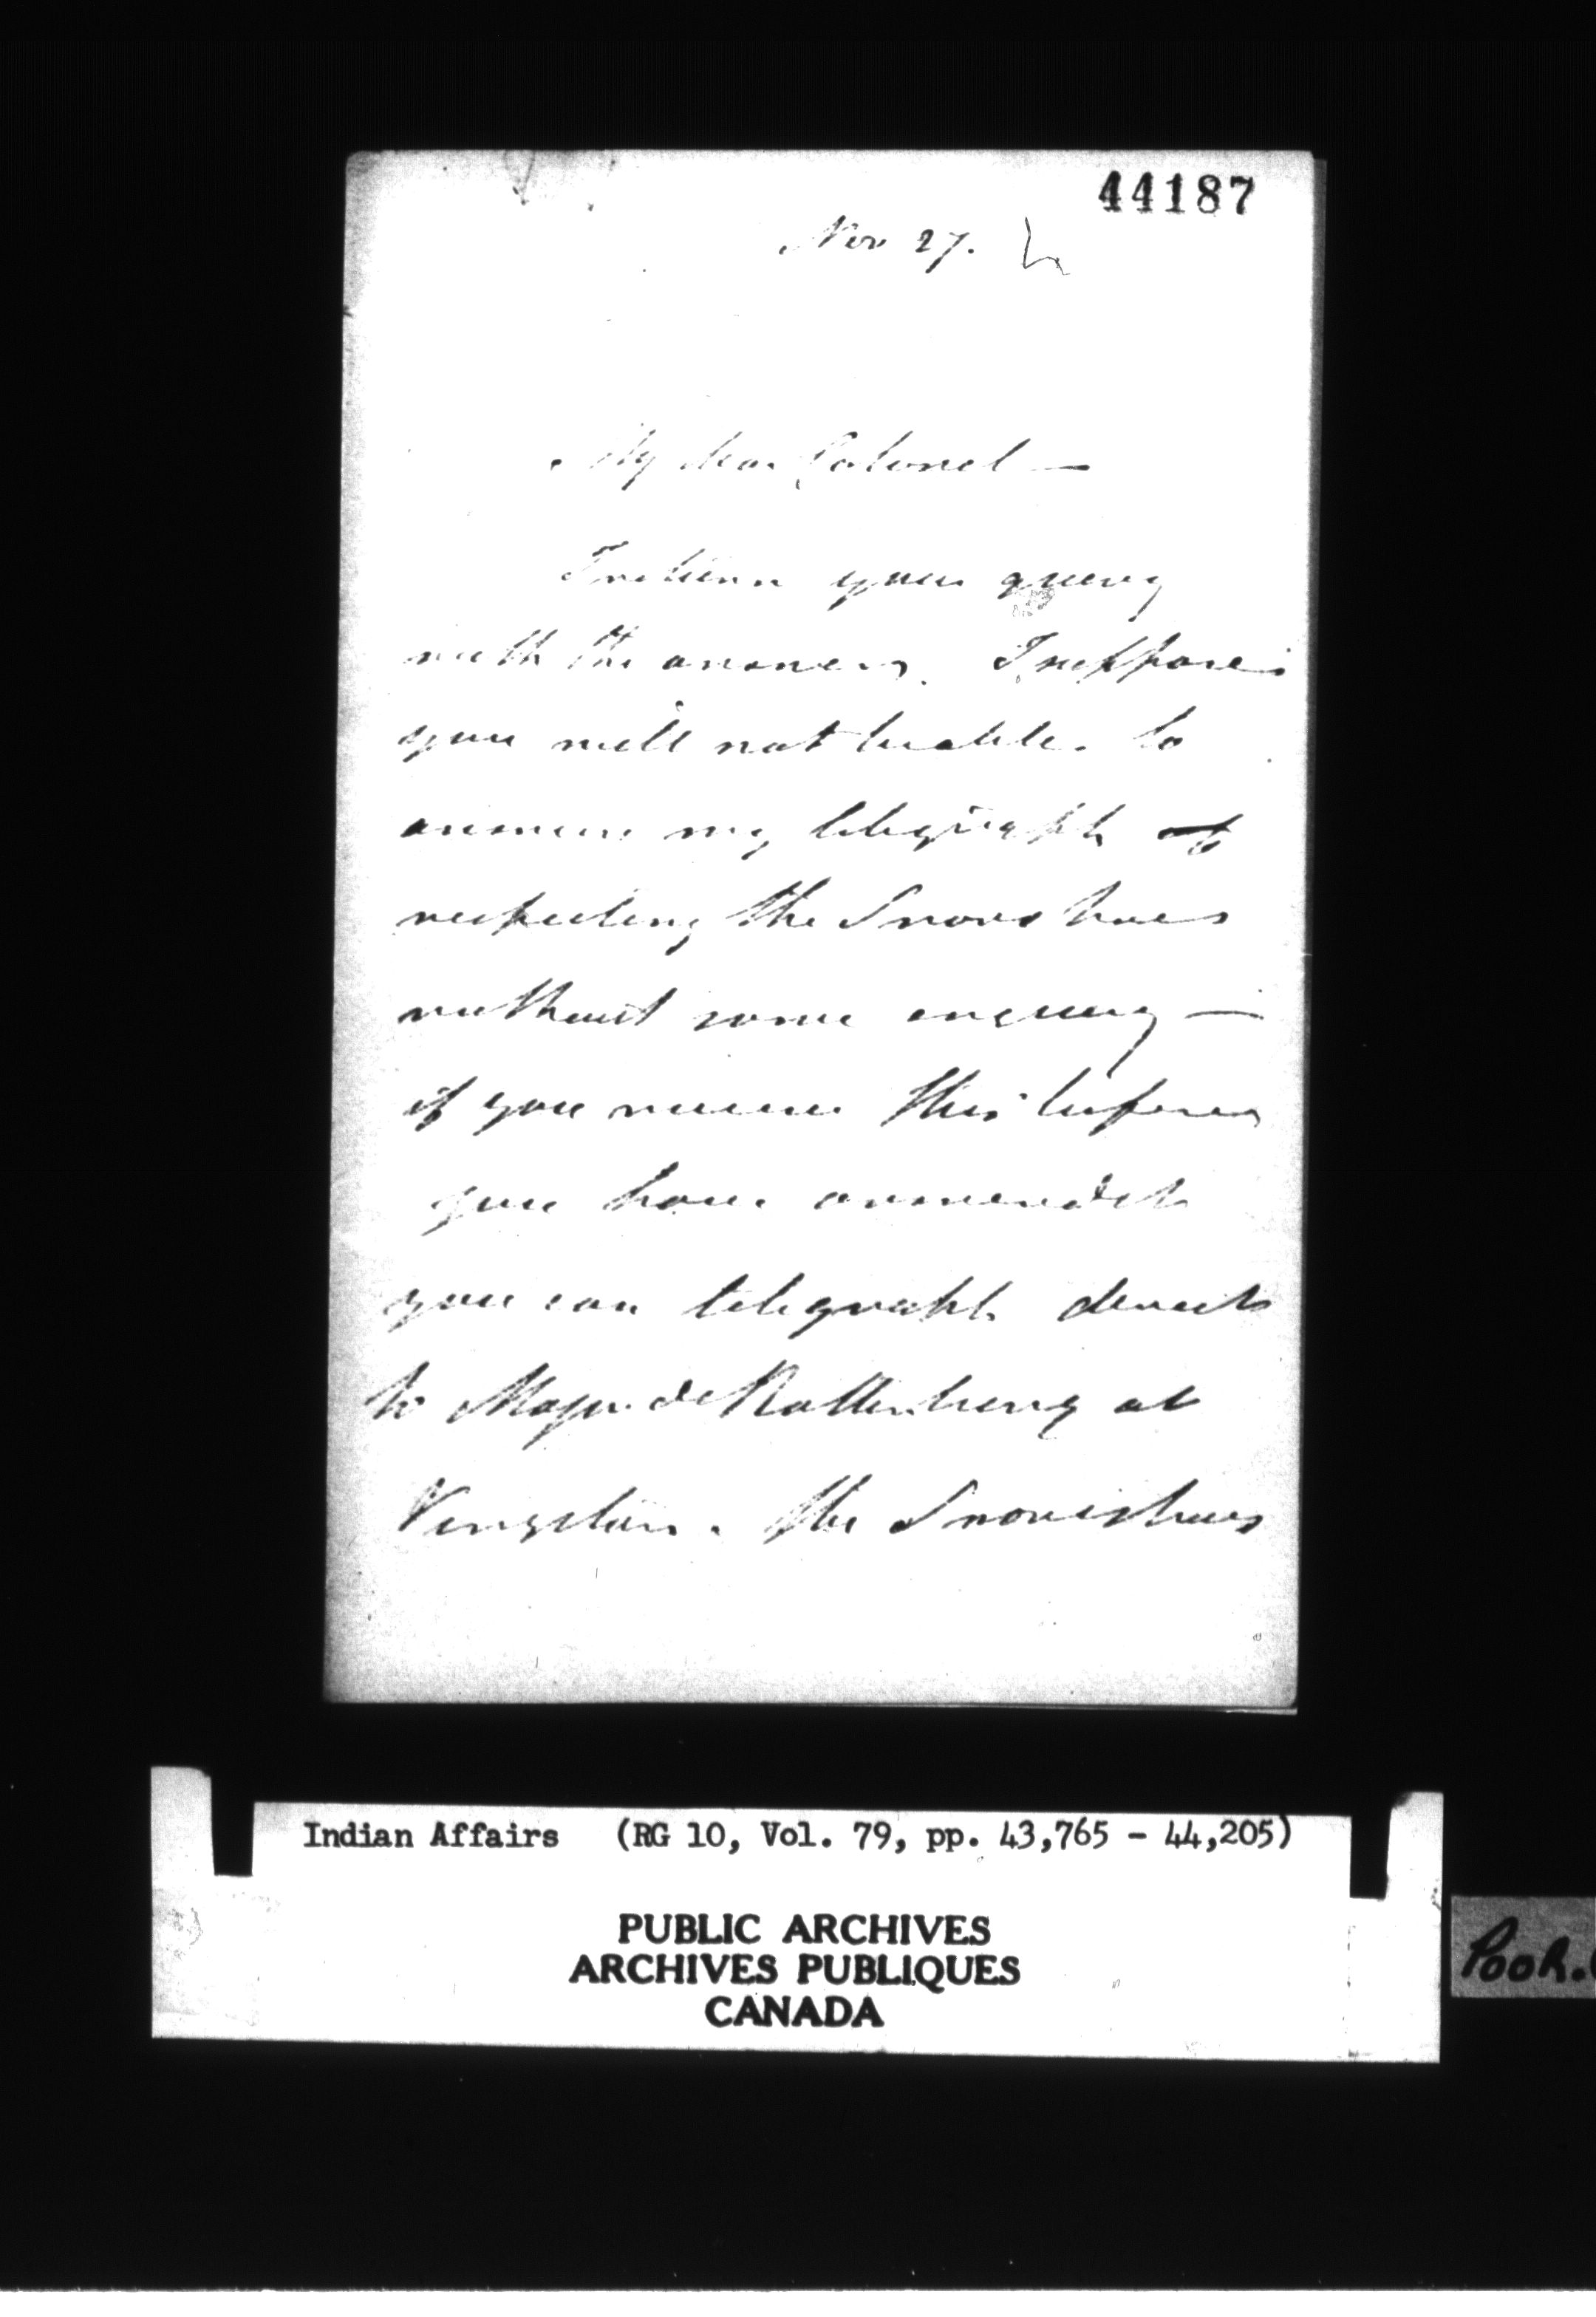 44187
Nov 27.
My dear Colonel —
I return your query
with the answer. I suppose
you will not be able to
answer my telegraph
respecting the Snow shoes
without some enquiry —
if you receive this before
you have answered it
you can telegraph direct
to Major de Rottenburg at
Kingston. The Snowshoes
Indian Affairs (RG 10, Vol. 79, pp. 43,765 - 44,205)
PUBLIC ARCHIVES
ARCHIVES PUBLIQUES
CANADA